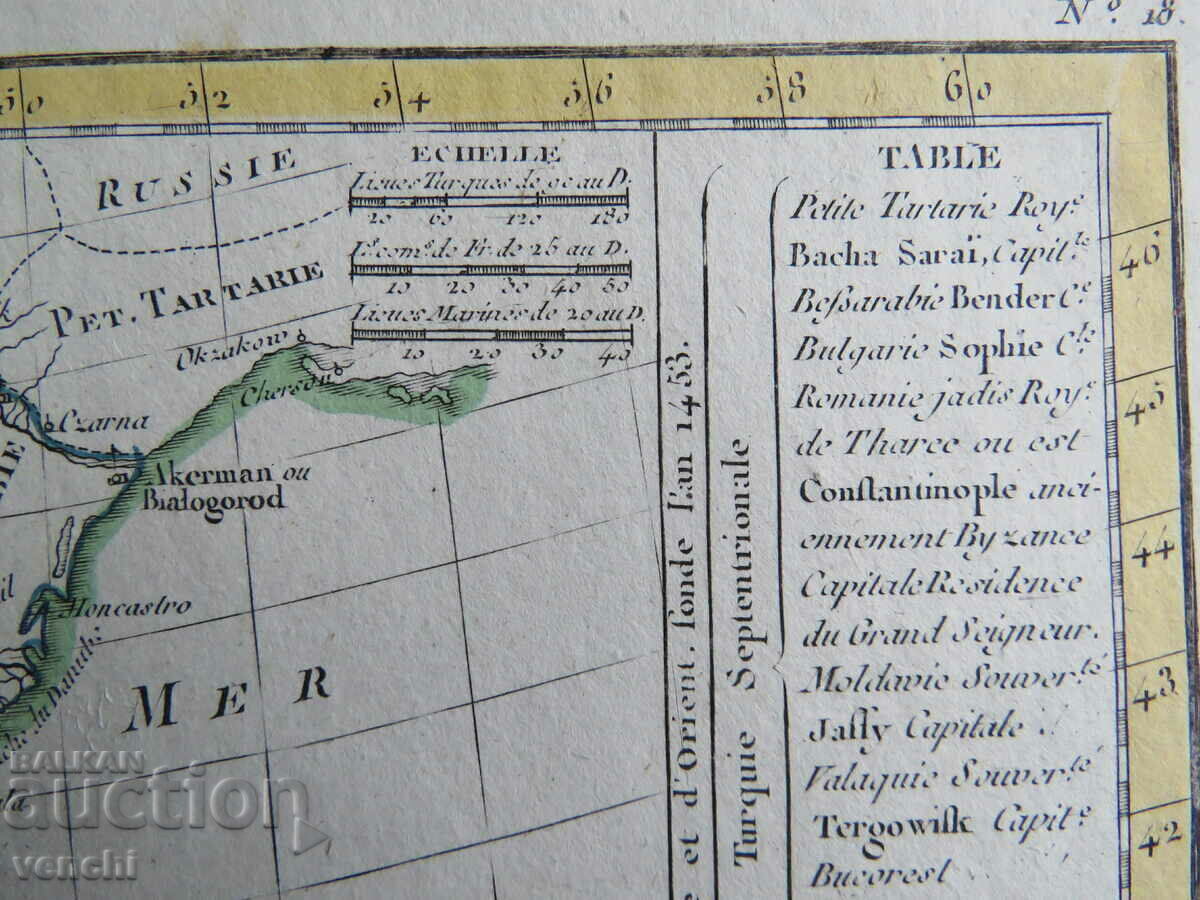 Nº. 18.
50 52 54 56 58 60
RUSSIE
ECHELLE
Lieues Turques de 90 au D.
20 60 120 180
Lˢ. comˢ. de Fr. de 25 au D.
10 20 30 40 50
Lieues Marines de 20 au D.
10 20 30 40
PET. TARTARIE
Okzakow
Cherson
Czarna
Akerman ou
Białogorod
Moncastro
MER
TABLE
Petite Tartarie Royᵉ.
Bacha Saraï, Capitˡᵉ.
Beſsarabie Bender Cᵉ.
Bulgarie Sophie Cˡᵉ.
Romanie jadis Royᵉ.
de Tharce ou est
Conſtantinople anci-
ennement Byzance
Capitale Residence
du Grand Seigneur.
Moldavie Souverᵗᵉ́
Jaſſy Capitale
Valaquie Souverᵗᵉ́
Tergowiſk Capitᵉ.
Bucorest
et d'Orient. fondé l'an 1453.
Turquie Septentrionale
46
45
44
43
42
BALKAN
auction
venchi